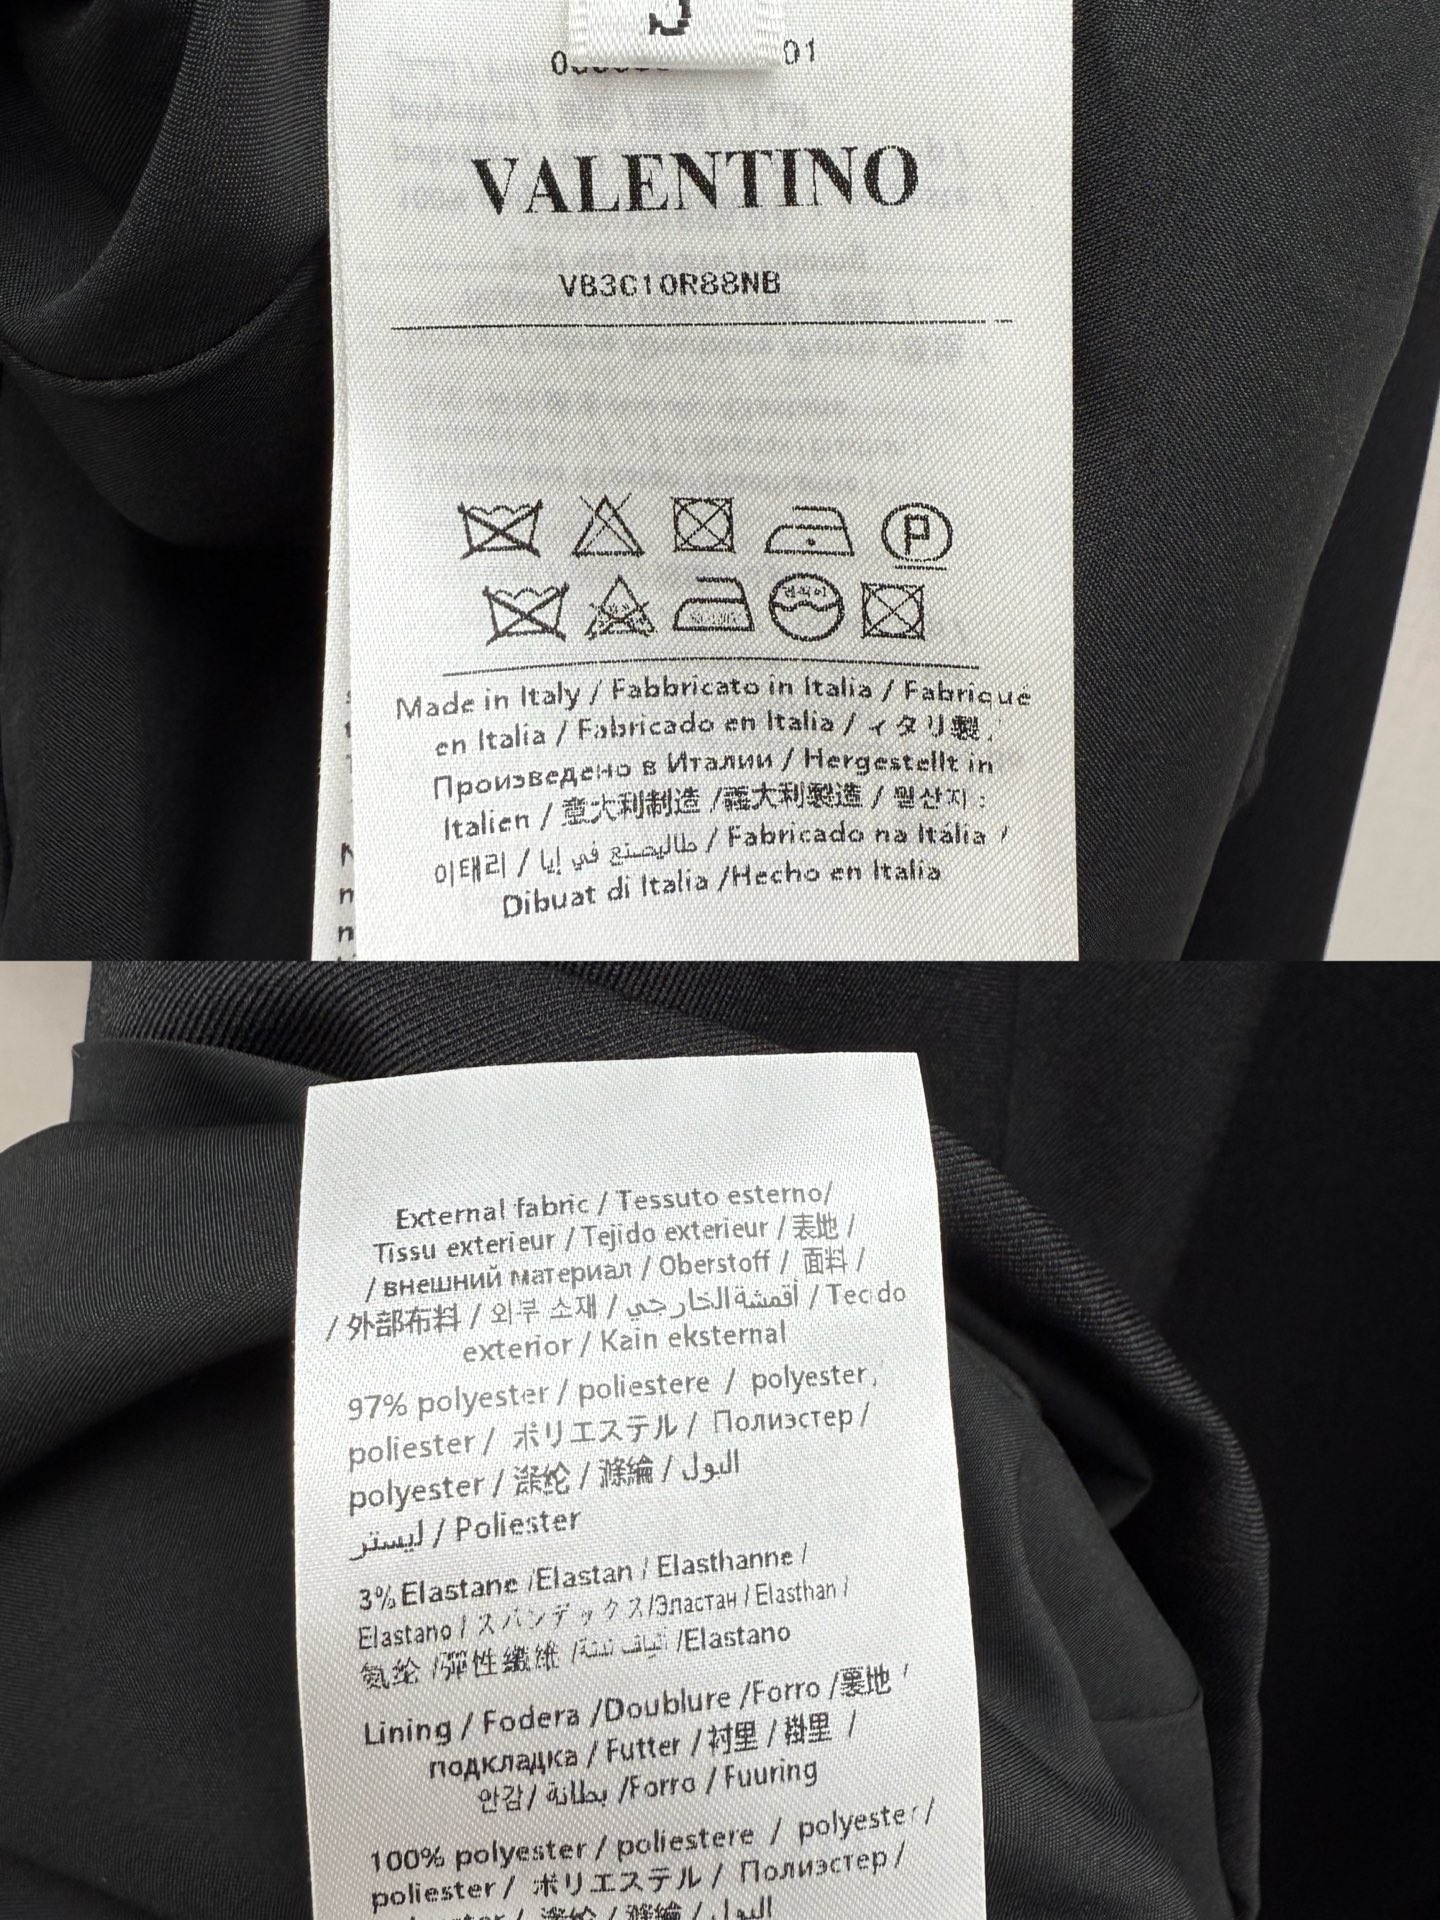 01
VALENTINO
VB3C10R88NB
P
Made in Italy / Fabbricato in Italia / Fabrique
en Italia / Fabricado en Italia / イタリ製
Произведено в Италии / Hergestellt in
Italien / 意大利制造 /義大利製造 /
이태리 / طاليصنع في إيا / Fabricado na Itália /
Dibuat di Italia /Hecho en Italia
External fabric / Tessuto esterno/
Tissu exterieur / Tejido exterieur / 表地 /
/ внешний материал / Oberstoff / 面料 /
/ 外部布料 / 외부 소재 / أقمشة الخارجي / Tecido
exterior / Kain eksternal
97% polyester / poliestere / polyester,
poliester / ポリエステル / Полиэстер /
polyester / 涤纶 / 滌綸 / البول
ليستر / Poliester
3% Elastane /Elastan / Elasthanne /
Elastano / スパンデックス/Эластан / Elasthan /
氨纶 /彈性纖維 / /Elastano
Lining / Fodera /Doublure /Forro /裏地
подкладка / Futter / 衬里 / 褂里 /
안감/ بطانة /Forro / Fuuring
100% polyester / poliestere / polyester /
poliester / ポリエステル / Полиэстер /